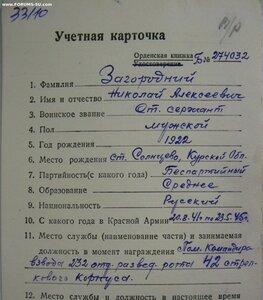 www.FORUMS-SU.com
33/10
н/р
Учетная карточка
Орденская книжка
Удостоверение Б№ 274032
1. Фамилия Загородний
2. Имя и отчество Николай Алексеевич
3. Воинское звание Ст. сержант
4. Пол мужской
5. Год рождения 1922
6. Место рождения ст. Солнцево, Курской Обл.
7. Партийность(с какого года) Беспартийный
8. Образование Среднее
9. Национальность Русский
10. С какого года в Красной Армии 20.8.41г по 23.5.46г.
11. Место службы (наименование части) и занимаемая
должность в момент награждения Пом. Командира
взвода 232 отд развед. роты 42 стрел-
кового корпуса.
12. Место службы и должность в настоящее время